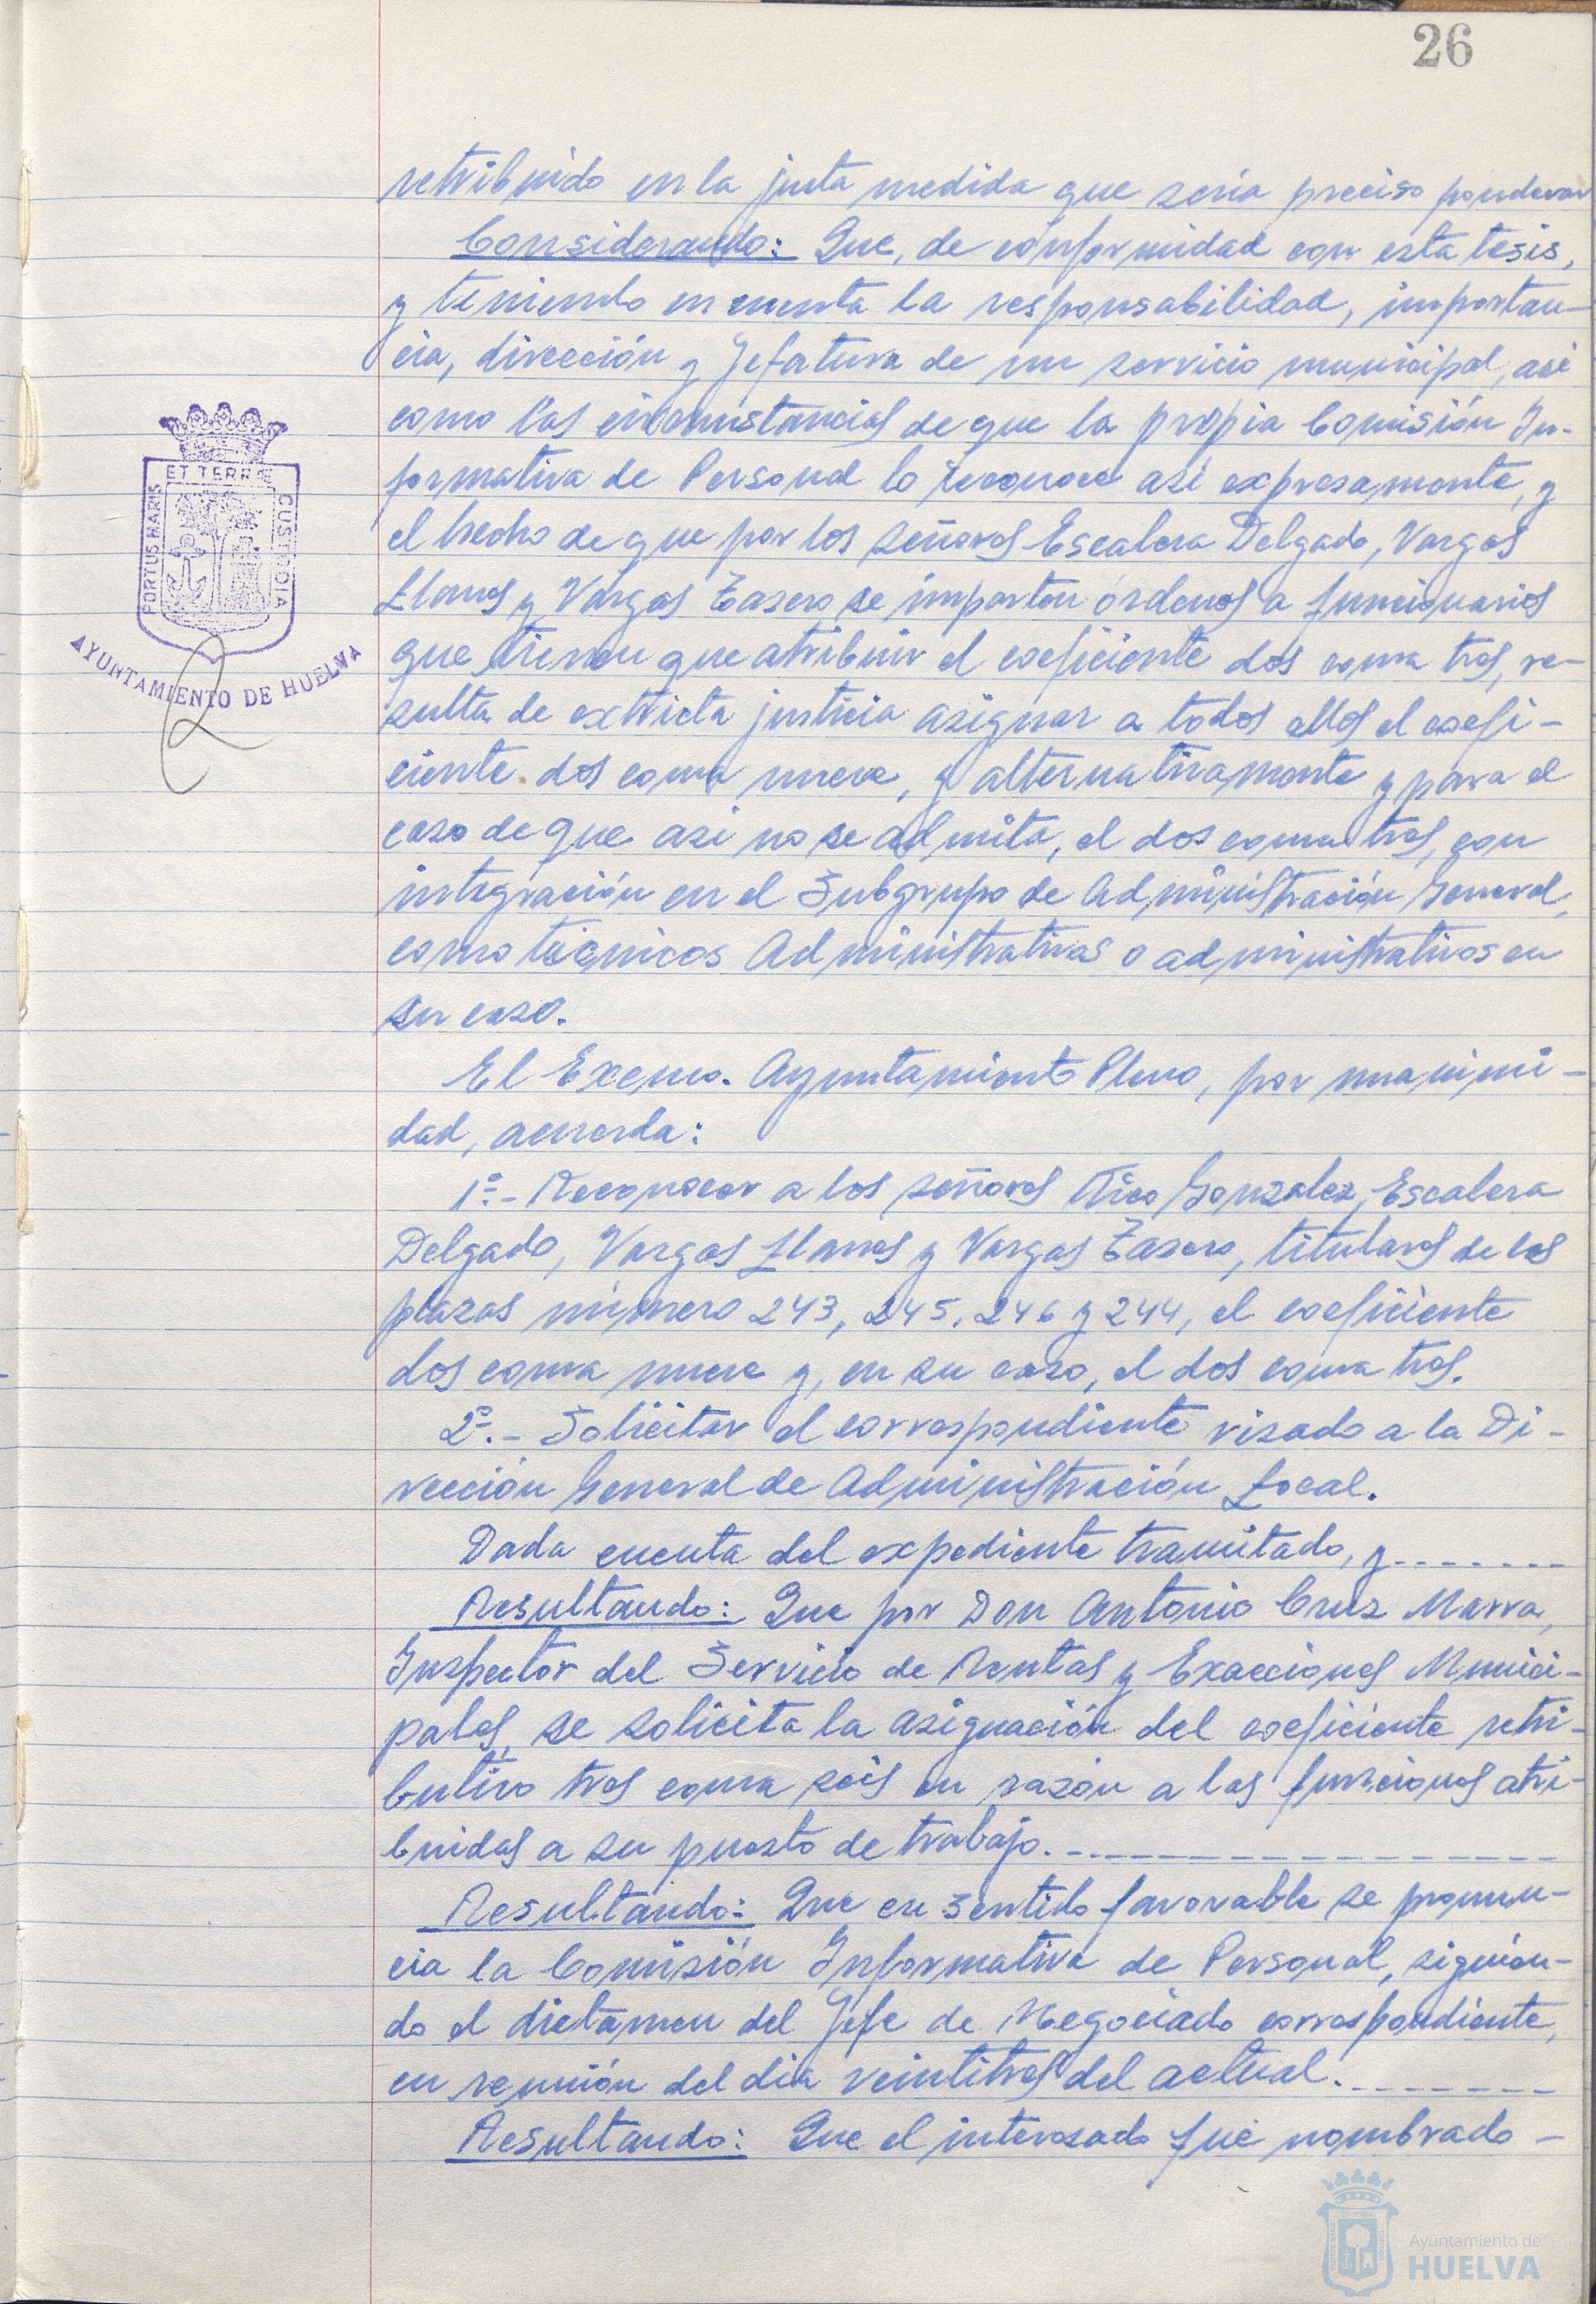 26
retribuido en la justa medida que sería preciso ponderar
Considerando: Que, de conformidad con esta tesis,
y teniendo en cuenta la responsabilidad, importan-
cia, dirección y Jefatura de un servicio municipal, así
como las circunstancias de que la propia Comisión In-
formativa de Personal lo reconoce así expresamente, y
el hecho de que por los señores Escalera Delgado, Vargas
Llanos y Vargas Zasero se imparten órdenes a funcionarios
que tienen que atribuir el coeficiente dos coma tres, re-
sulta de extricta justicia asignar a todos ellos el coefi-
ciente dos coma nueve, y alternativamente y para el
caso de que asi no se admita, el dos coma tres, con
integración en el Subgrupo de Administración General,
como técnicos Administrativos o administrativos en
su caso.
El Excmo. Ayuntamiento Pleno, por unanimi-
dad, acuerda:
1º.- Reconocer a los señores Rico Gonzalez, Escalera
Delgado, Vargas Llanos y Vargas Zasero, titulares de las
plazas número 243, 245, 246 y 244, el coeficiente
dos coma nueve y, en su caso, el dos coma tres.
2º.- Solicitar el correspondiente visado a la Di-
rección General de Administración Local.
Dada cuenta del expediente tramitado, y-------
Resultando: Que por Don Antonio Cruz Marra,
Inspector del Servicio de Rentas y Exacciones Munici-
pales, se solicita la asignación del coeficiente retri-
butivo tres coma seis en razón a las funciones atri-
buidas a su puesto de trabajo.----------------
Resultando: Que en sentido favorable se pronun-
cia la Comisión Informativa de Personal, siguien-
do el dictamen del Jefe de Negociado correspondiente,
en reunión del dia veintitres del actual.-------
Resultando: Que el interesado fué nombrado -
PORTUS MARIS
ET TERRÆ
CUSTODIA
AYUNTAMIENTO DE HUELVA
Ayuntamiento de
HUELVA